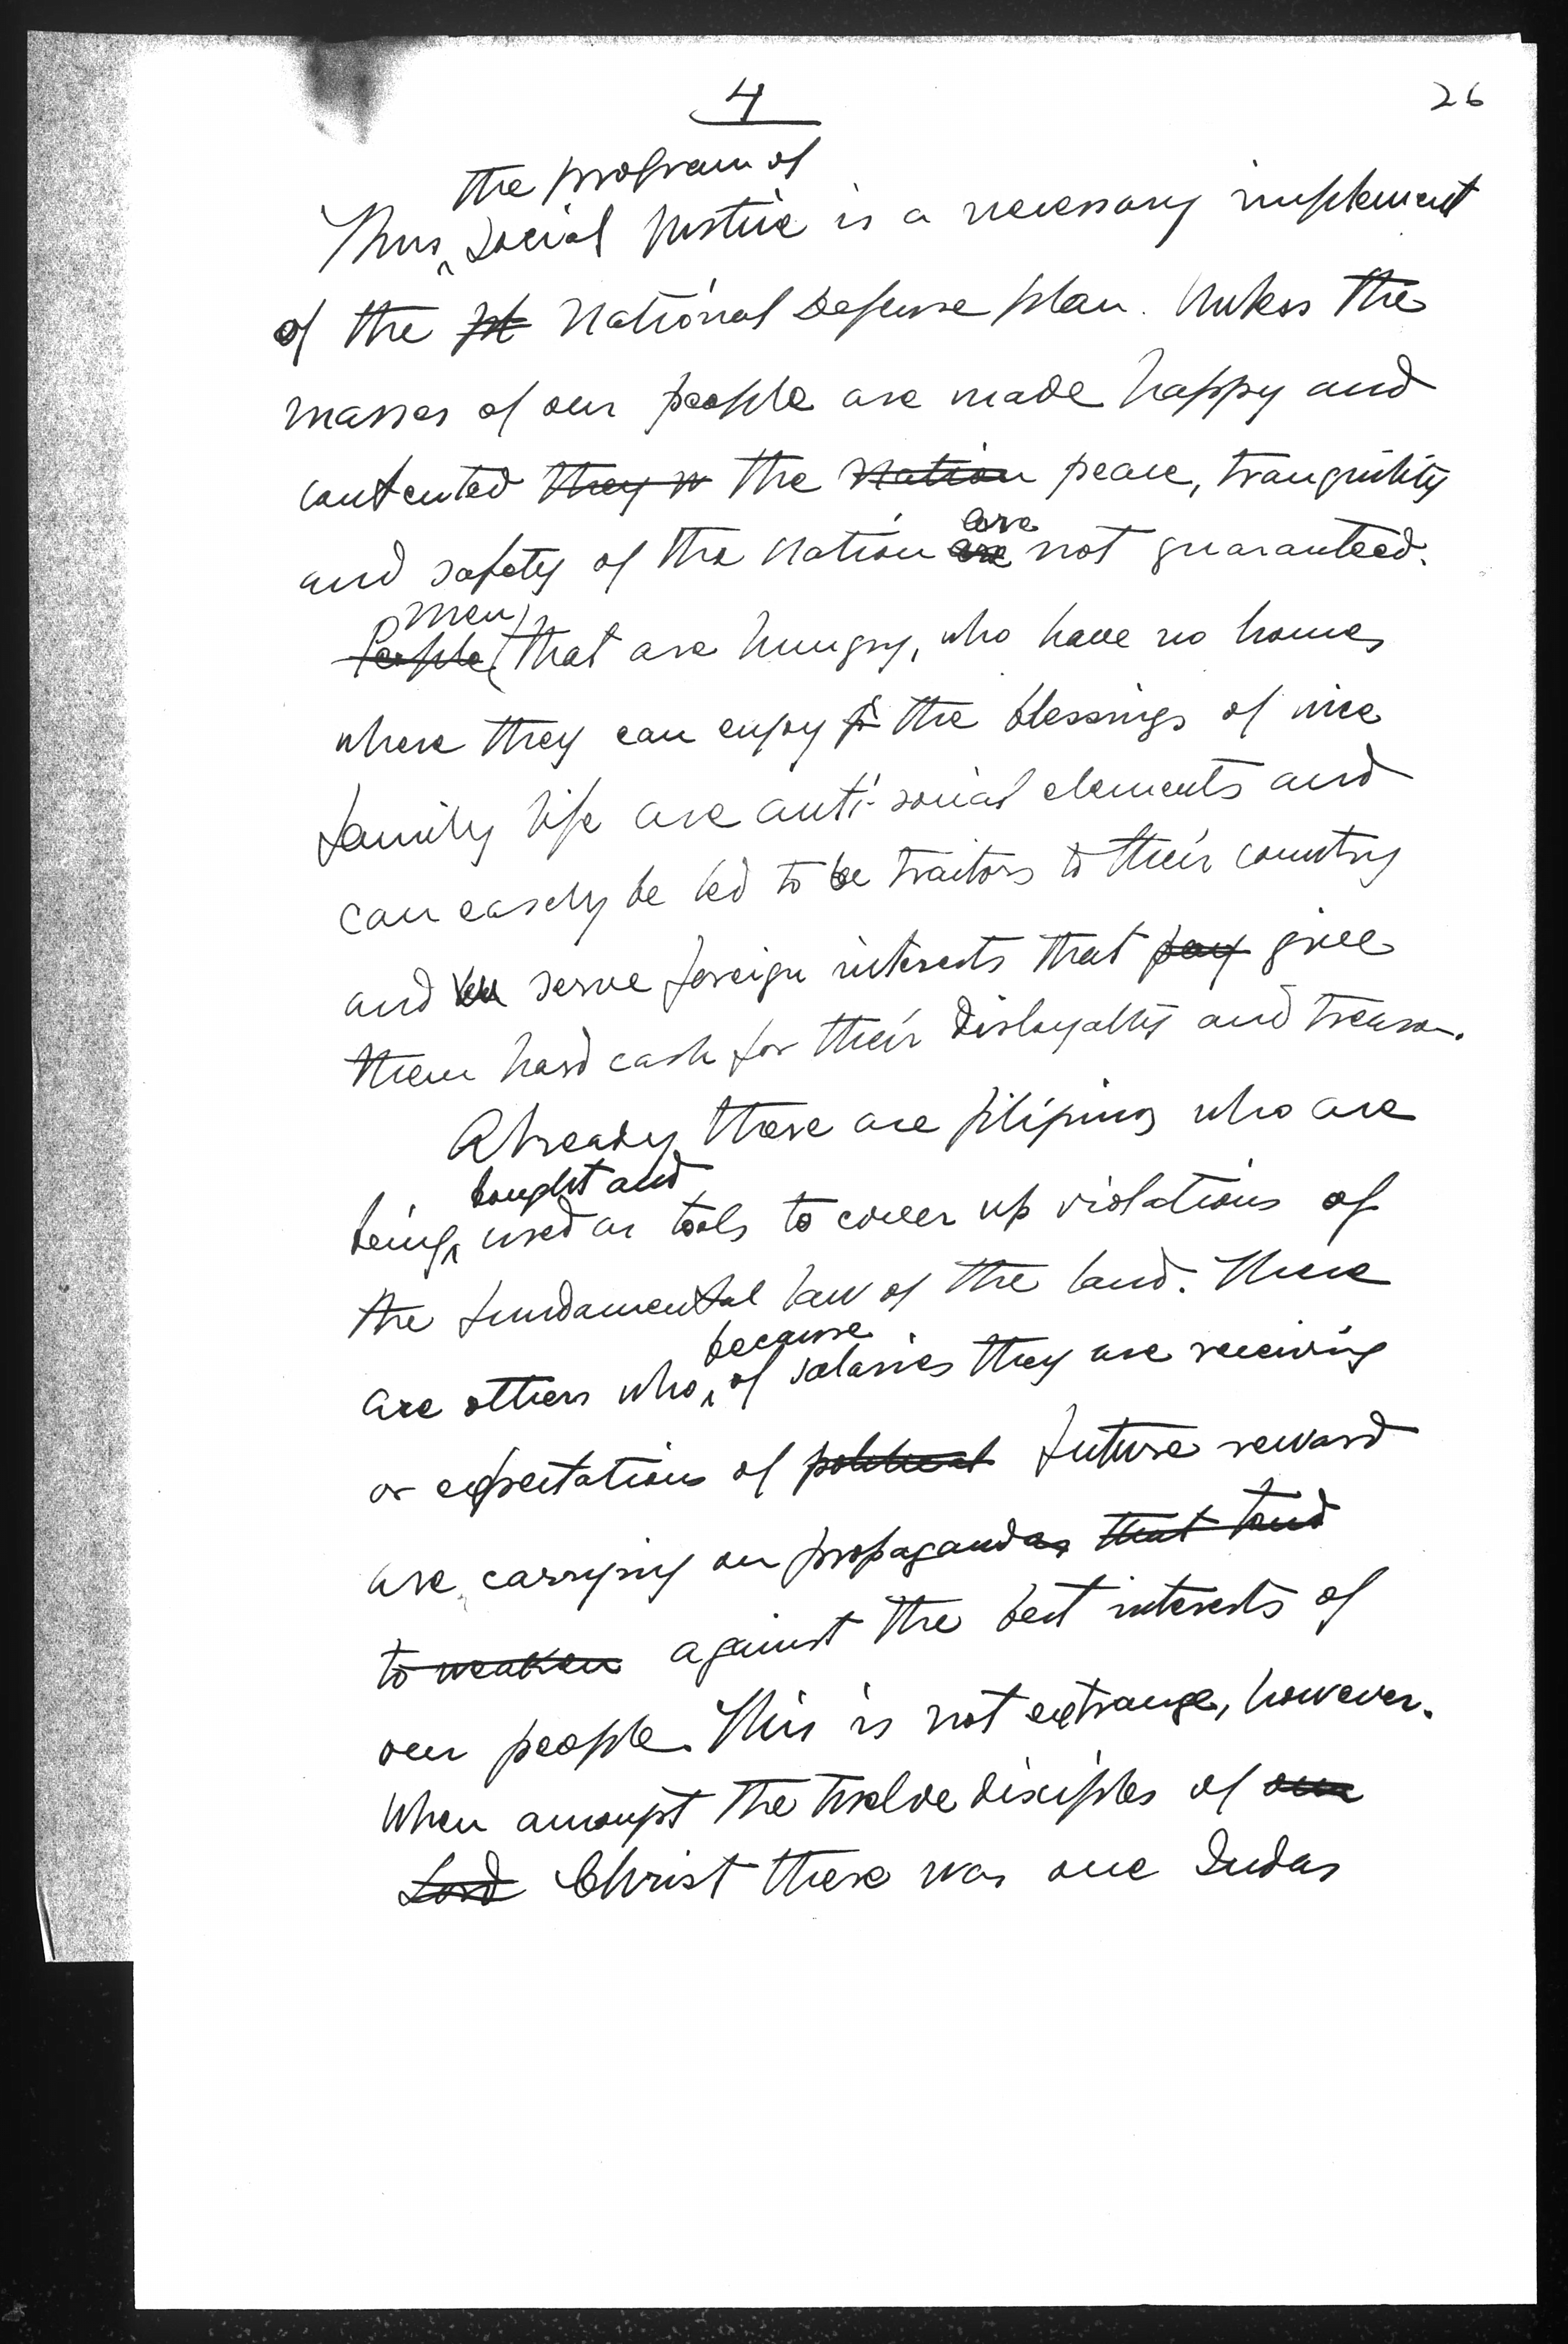 4
26
the program of
Thus Social Justice is a necessary implement
of the pl National Defense plan. Unless the
masses of our people are made happy and
contented they w the nation peace, tranquility
are
and safety of the nation are not guaranteed.
men
People that are hungry, who have no homes
where they can enjoy the blessings of nice
family life are anti-social elements and
can easely be led to be traitors to their country
and serve foreign interests that pay give
them hard cash for their disloyalty and treason.
Already there are filipinos who are
bought and
being used as tools to cover up violations of
the fundamental law of the land. There
because
are others who, of salaries they are receiving
or expectations of political future reward
are carrying on propagandas that tend
to weaken against the best interests of
our people. This is not extrange, however.
When amongst the twelve disciples of our
Lord Christ there was one Judas